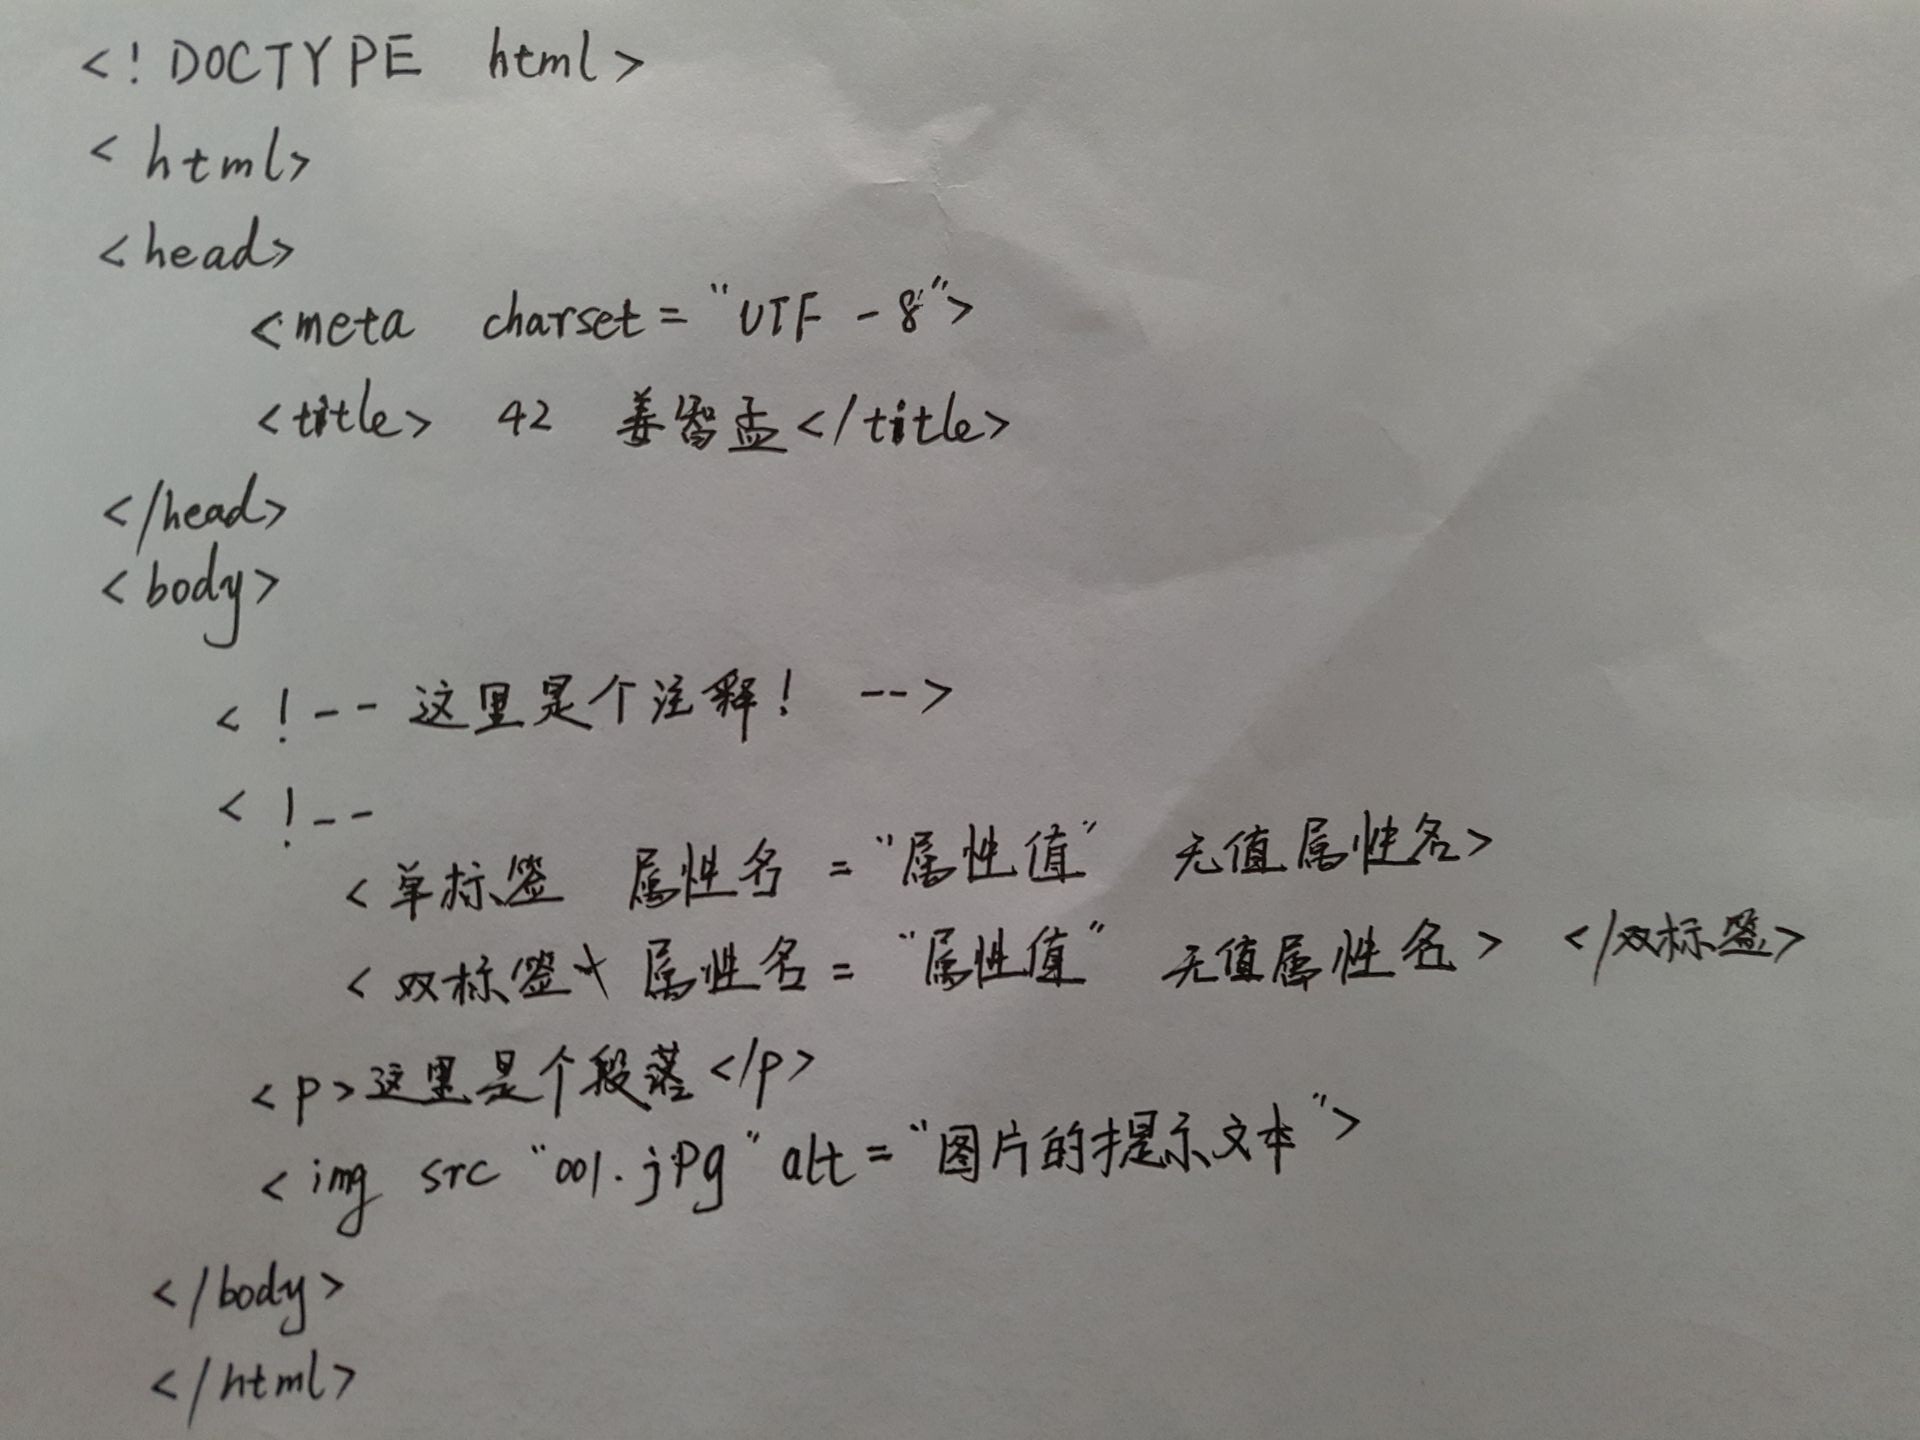 <!DOCTYPE html>
<html>
<head>
<meta charset="UTF-8">
<title> 42 姜智孟</title>
</head>
<body>
<!-- 这里是个注释! -->
<!--
<单标签 属性名="属性值" 无值属性名>
<双标签 属性名="属性值" 无值属性名> </双标签>
<p>这里是个段落</p>
<img src "001.jpg" alt="图片的提示文本">
</body>
</html>